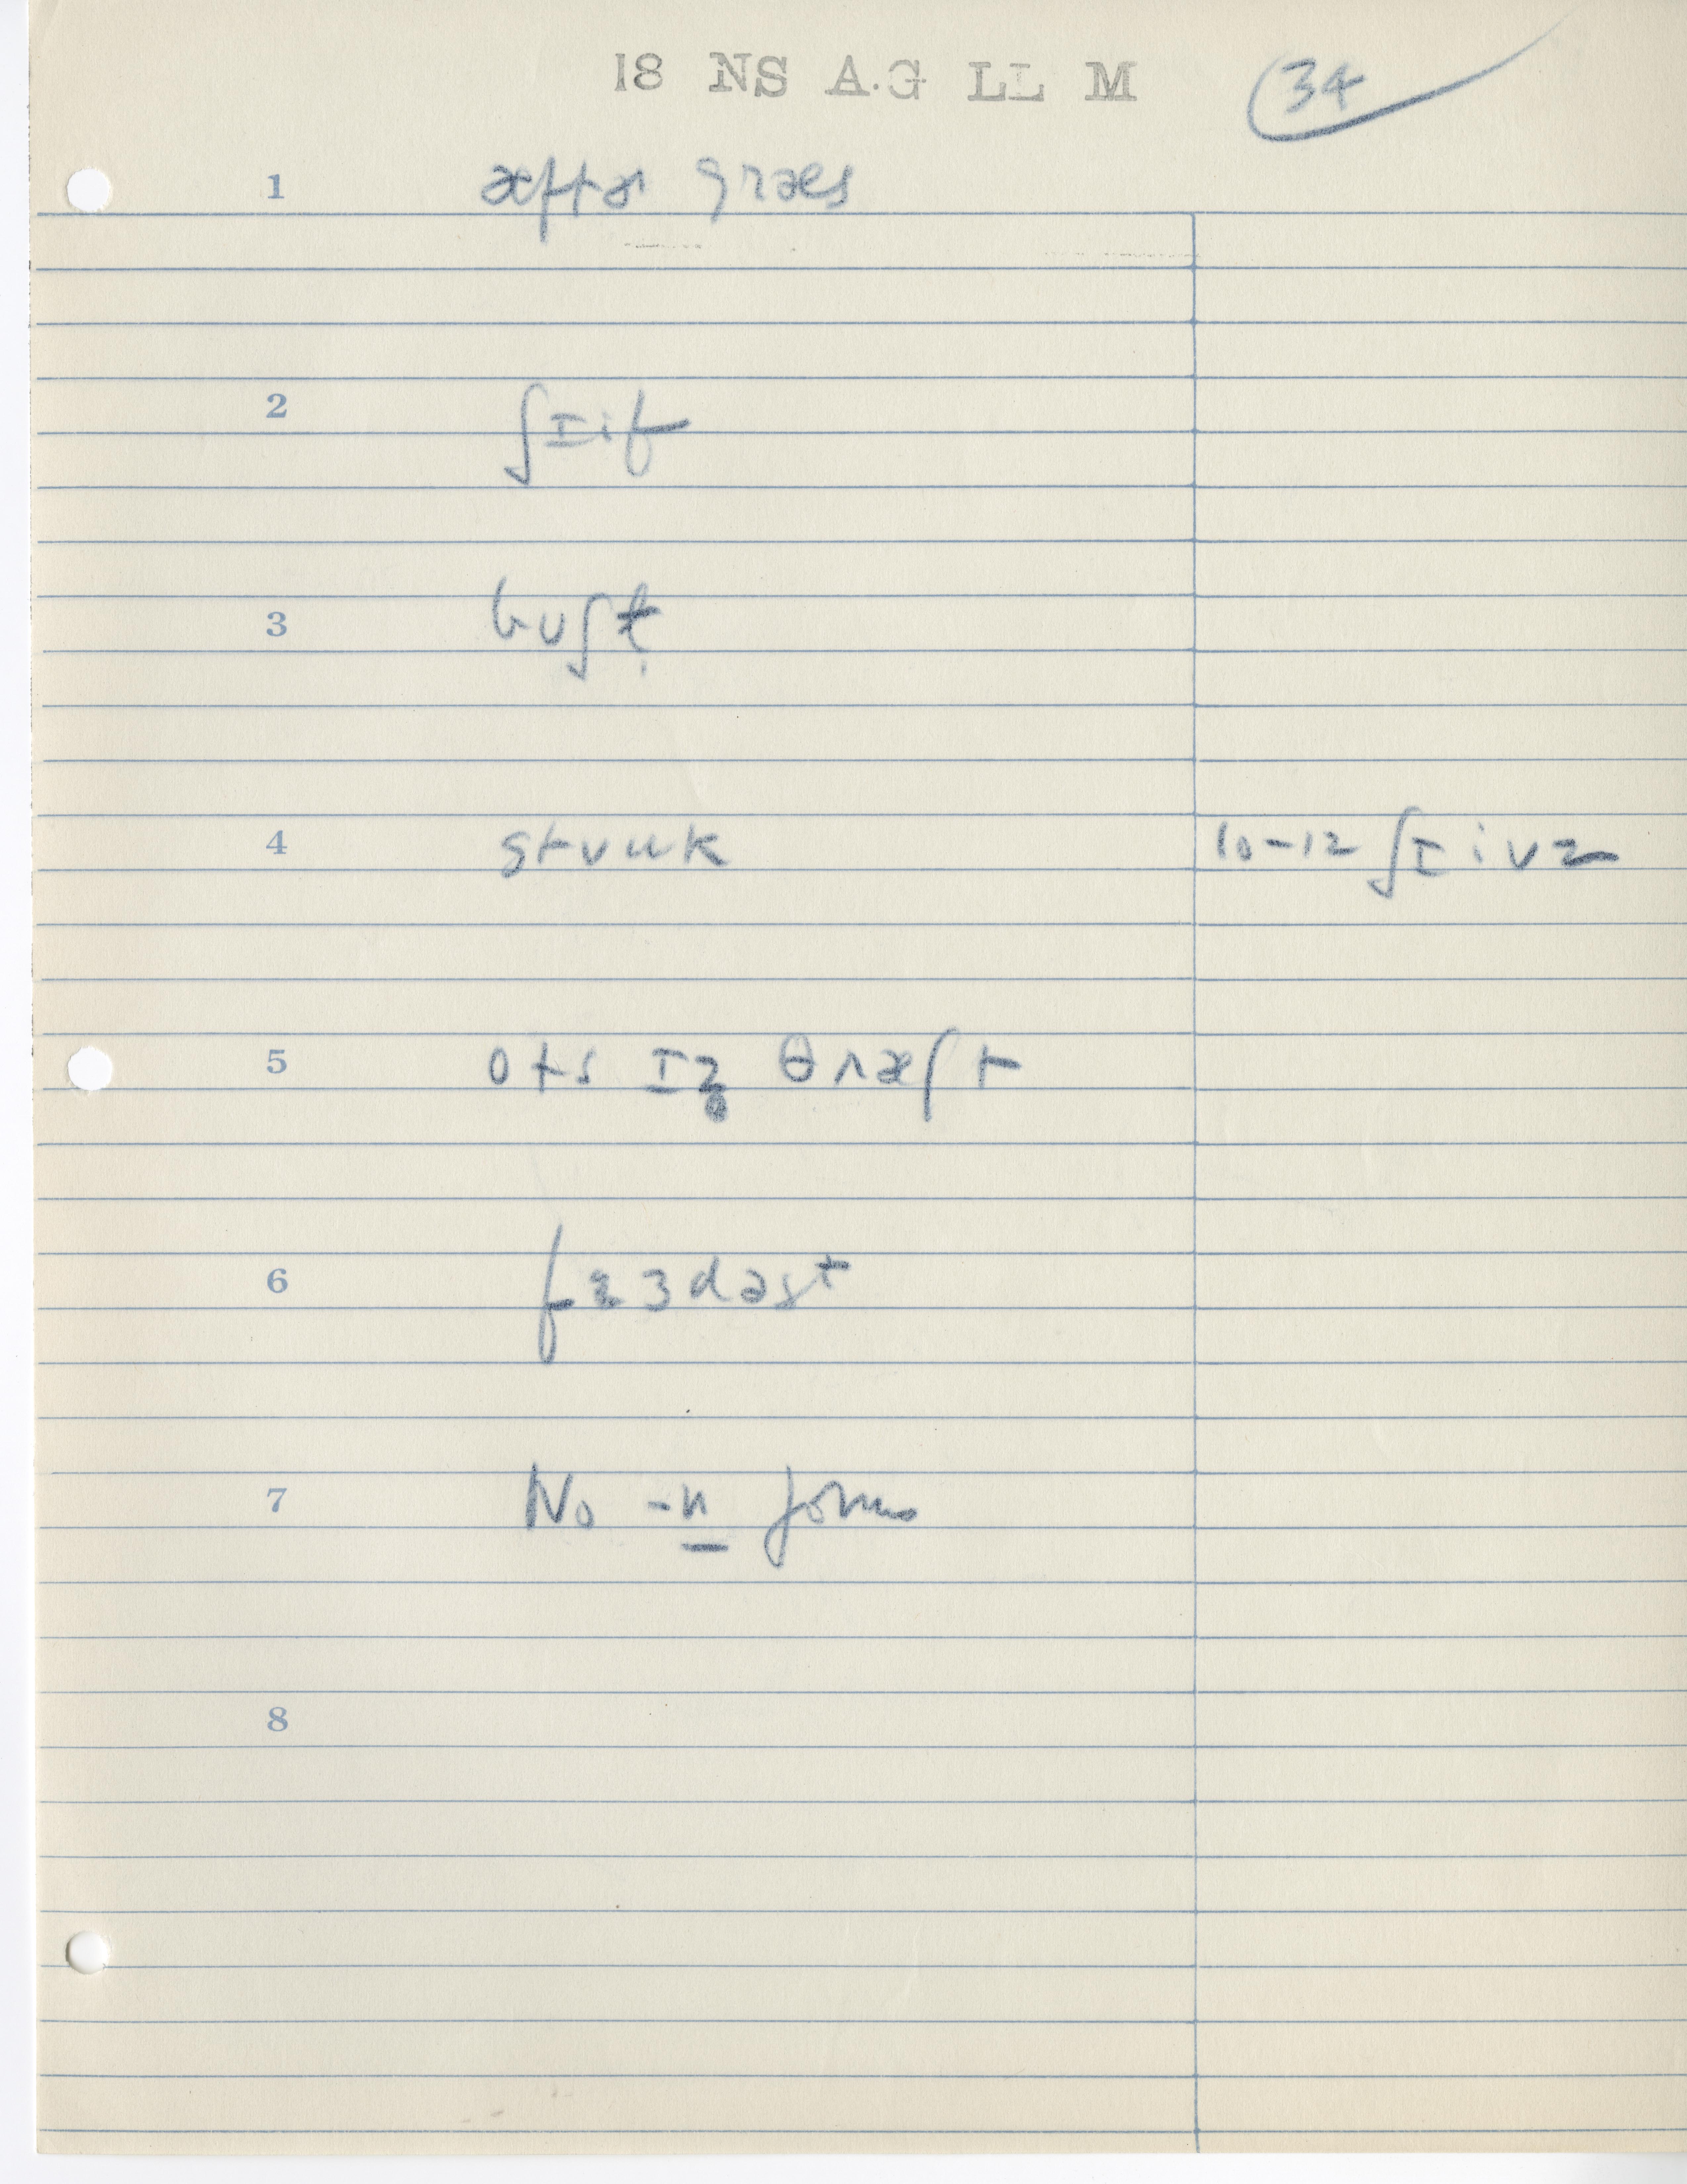 18 NS A.G LL M 34
1 æftɚ græs
2 ʃɪif
3 buʃt̩
4 stuuk 10-12 ʃɪivz
5 ots ɪz̥ θræʃt
6 fɜdəst
7 No -n forms
8